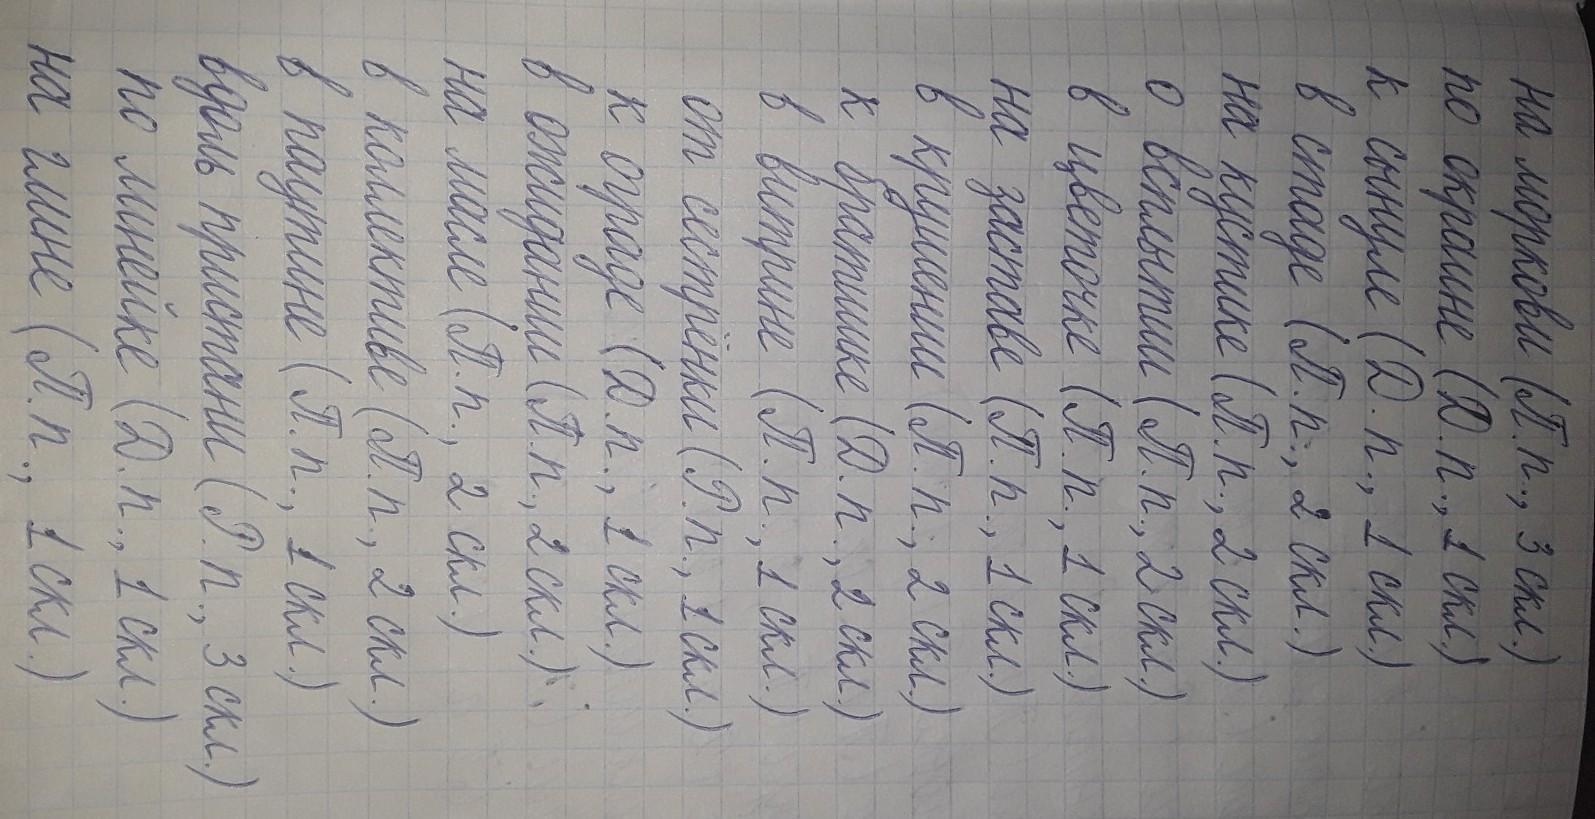 на моркови (П.п., 3 скл.)
по окраине (Д.п., 1 скл.)
к сынуле (Д.п., 1 скл.)
в стаде (П.п., 2 скл.)
на кустике (П.п., 2 скл.)
о вспытии (П.п., 2 скл.)
в цветочке (П.п., 1 скл.)
на заставе (П.п., 1 скл.)
в крушении (П.п., 2 скл.)
к братишке (Д.п., 2 скл.)
в витрине (П.п., 1 скл.)
от сестрёнки (Р.п., 1 скл.)
к ограде (Д.п., 1 скл.)
в ожидании (П.п., 2 скл.),
на масле (П.п., 2 скл.)
в коллективе (П.п., 2 скл.)
в паутине (П.п., 1 скл.)
вдоль пристани (Р.п., 3 скл.)
по линейке (Д.п., 1 скл.)
на глине (П.п., 1 скл.)